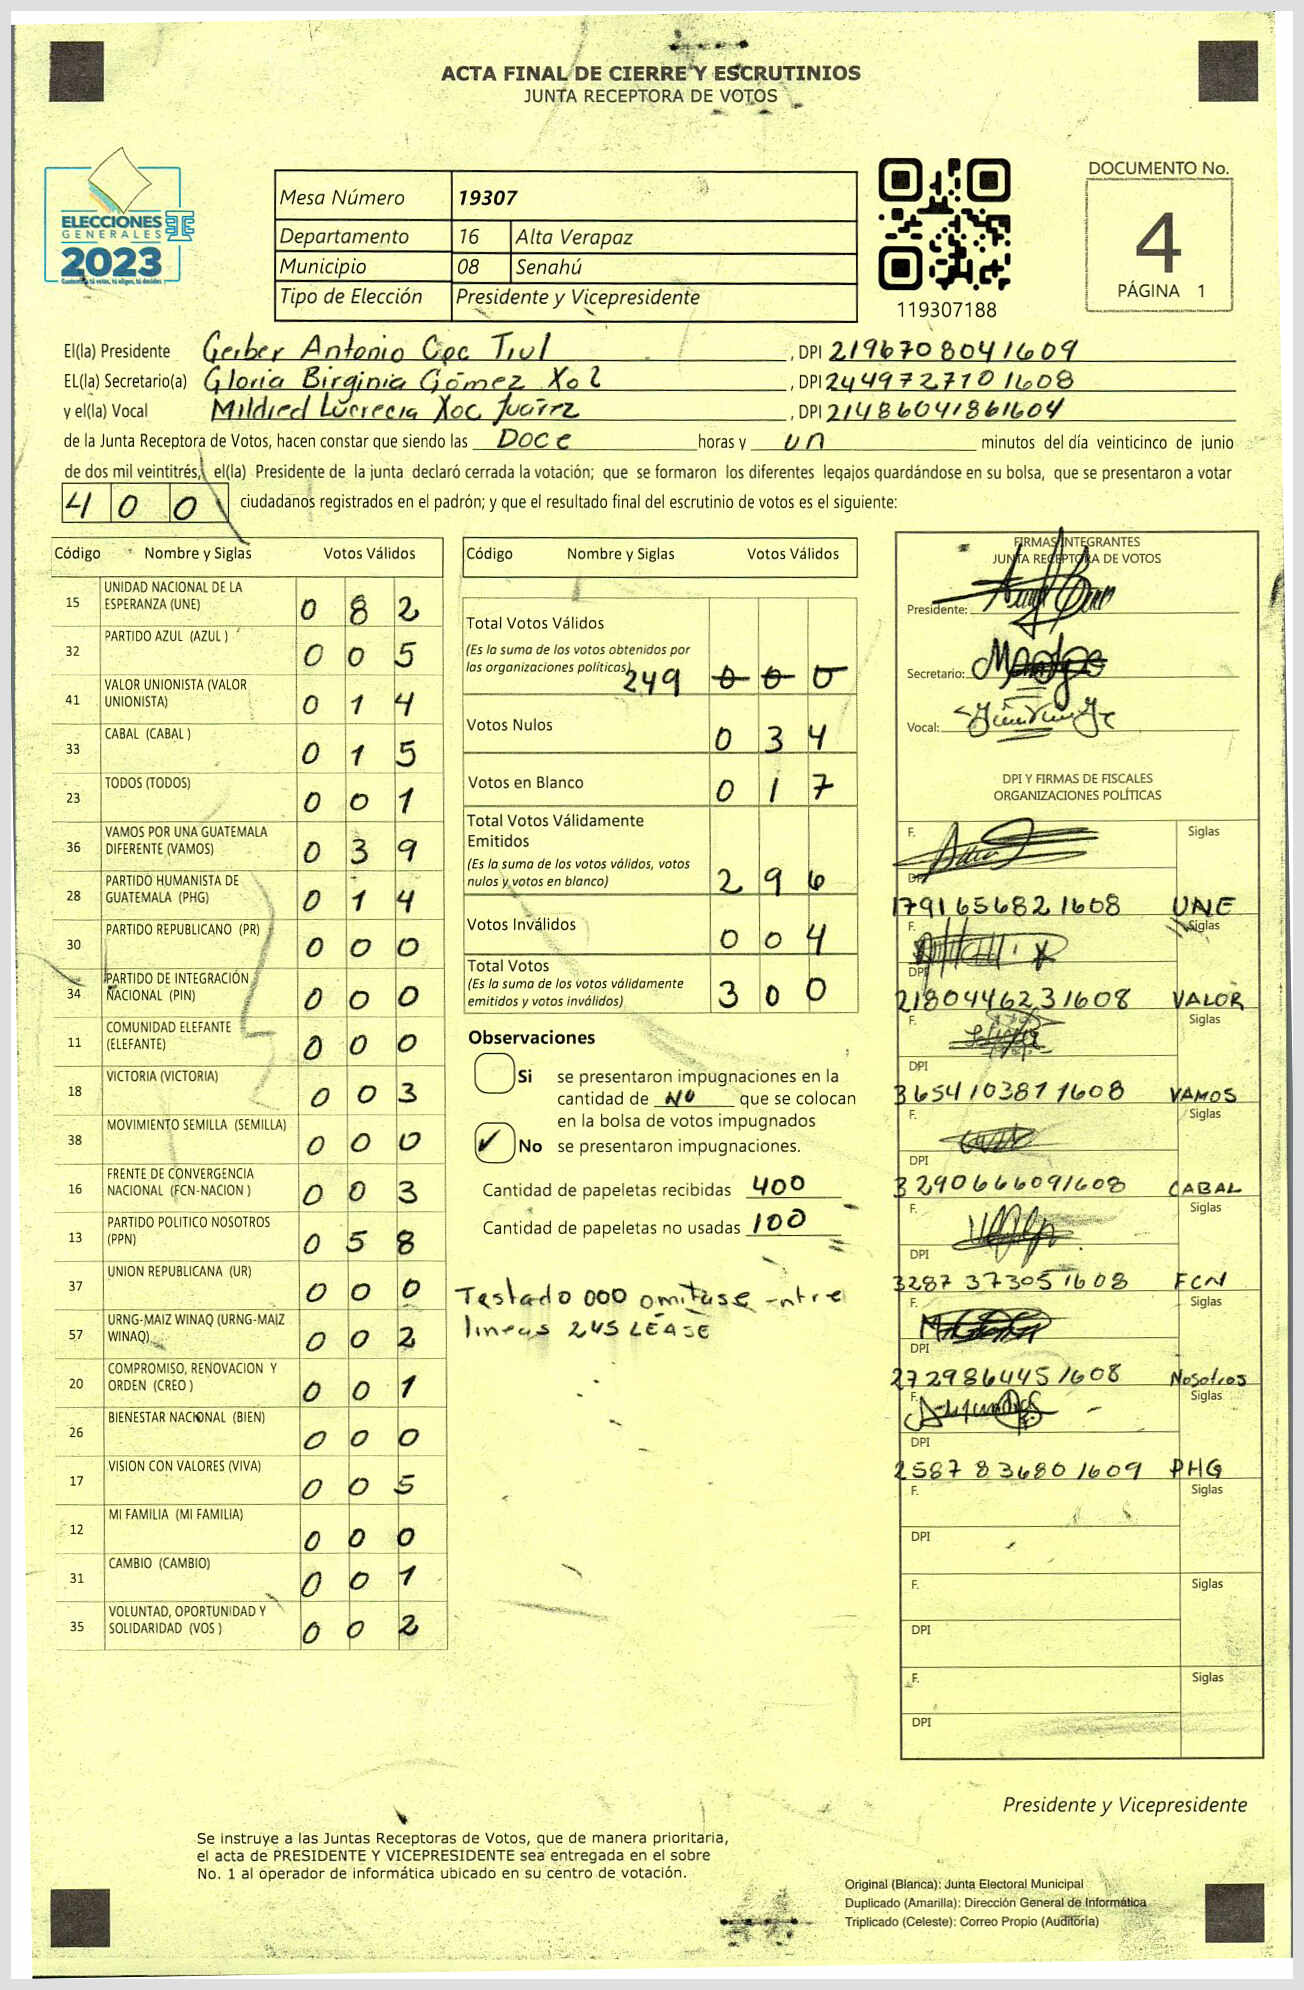 ACTA FINAL DE CIERRE Y ESCRUTINIOS
JUNTA RECEPTORA DE VOTOS
ELECCIONES
GENERALES
2023
Mesa Número 19307
Departamento 16 Alta Verapaz
Municipio 08 Senahú
Tipo de Elección Presidente y Vicepresidente
119307188
DOCUMENTO No.
4
PÁGINA 1
El(la) Presidente Gerber Antonio Coc Tiul, DPI 2196708041609
EL(la) Secretario(a) Gloria Birginia Gómez Xol, DPI 2449727101608
y el(la) Vocal Mildred Lucrecia Xoc Juárez, DPI 21486041861604
de la Junta Receptora de Votos, hacen constar que siendo las Doce horas y un minutos del día veinticinco de junio
de dos mil veintitrés, el(la) Presidente de la junta declaró cerrada la votación; que se formaron los diferentes legajos guardándose en su bolsa, que se presentaron a votar
400 ciudadanos registrados en el padrón; y que el resultado final del escrutinio de votos es el siguiente:
Código Nombre y Siglas Votos Válidos
15 UNIDAD NACIONAL DE LA ESPERANZA (UNE) 0 8 2
32 PARTIDO AZUL (AZUL ) 0 0 5
41 VALOR UNIONISTA (VALOR UNIONISTA) 0 1 4
33 CABAL (CABAL ) 0 1 5
23 TODOS (TODOS) 0 0 1
36 VAMOS POR UNA GUATEMALA DIFERENTE (VAMOS) 0 3 9
28 PARTIDO HUMANISTA DE GUATEMALA (PHG) 0 1 4
30 PARTIDO REPUBLICANO (PR) 0 0 0
34 PARTIDO DE INTEGRACIÓN NACIONAL (PIN) 0 0 0
11 COMUNIDAD ELEFANTE (ELEFANTE) 0 0 0
18 VICTORIA (VICTORIA) 0 0 3
38 MOVIMIENTO SEMILLA (SEMILLA) 0 0 0
16 FRENTE DE CONVERGENCIA NACIONAL (FCN-NACION ) 0 0 3
13 PARTIDO POLITICO NOSOTROS (PPN) 0 5 8
37 UNION REPUBLICANA (UR) 0 0 0
57 URNG-MAIZ WINAQ (URNG-MAIZ WINAQ) 0 0 2
20 COMPROMISO, RENOVACION Y ORDEN (CREO ) 0 0 1
26 BIENESTAR NACIONAL (BIEN) 0 0 0
17 VISION CON VALORES (VIVA) 0 0 5
12 MI FAMILIA (MI FAMILIA) 0 0 0
31 CAMBIO (CAMBIO) 0 0 1
35 VOLUNTAD, OPORTUNIDAD Y SOLIDARIDAD (VOS ) 0 0 2
Código Nombre y Siglas Votos Válidos
Total Votos Válidos
(Es la suma de los votos obtenidos por
las organizaciones políticas) 249 0 0 0
Votos Nulos 0 3 4
Votos en Blanco 0 1 7
Total Votos Válidamente
Emitidos
(Es la suma de los votos válidos, votos
nulos y votos en blanco) 2 9 6
Votos Inválidos 0 0 4
Total Votos
(Es la suma de los votos válidamente
emitidos y votos inválidos) 3 0 0
Observaciones
Si se presentaron impugnaciones en la
cantidad de NO que se colocan
en la bolsa de votos impugnados
✓ No se presentaron impugnaciones.
Cantidad de papeletas recibidas 400
Cantidad de papeletas no usadas 100
Testado 000 omitase entre
lineas 245 LEASE
FIRMAS INTEGRANTES
JUNTA RECEPTORA DE VOTOS
Presidente:
Secretario:
Vocal:
DPI Y FIRMAS DE FISCALES
ORGANIZACIONES POLÍTICAS
F. Siglas
DPI
1791656821608 UNE
F. Siglas
DPI
2180446231608 VALOR
F. Siglas
DPI
3654103871608 VAMOS
F. Siglas
DPI
3290666091608 CABAL
F. Siglas
DPI
3287373051608 FCN
F. Siglas
DPI
2729864451608 Nosotros
F. Siglas
DPI
2587836801609 PHG
F. Siglas
DPI
F. Siglas
DPI
F. Siglas
DPI
Presidente y Vicepresidente
Se instruye a las Juntas Receptoras de Votos, que de manera prioritaria,
el acta de PRESIDENTE Y VICEPRESIDENTE sea entregada en el sobre
No. 1 al operador de informática ubicado en su centro de votación.
Original (Blanca): Junta Electoral Municipal
Duplicado (Amarilla): Dirección General de Informática
Triplicado (Celeste): Correo Propio (Auditoría)